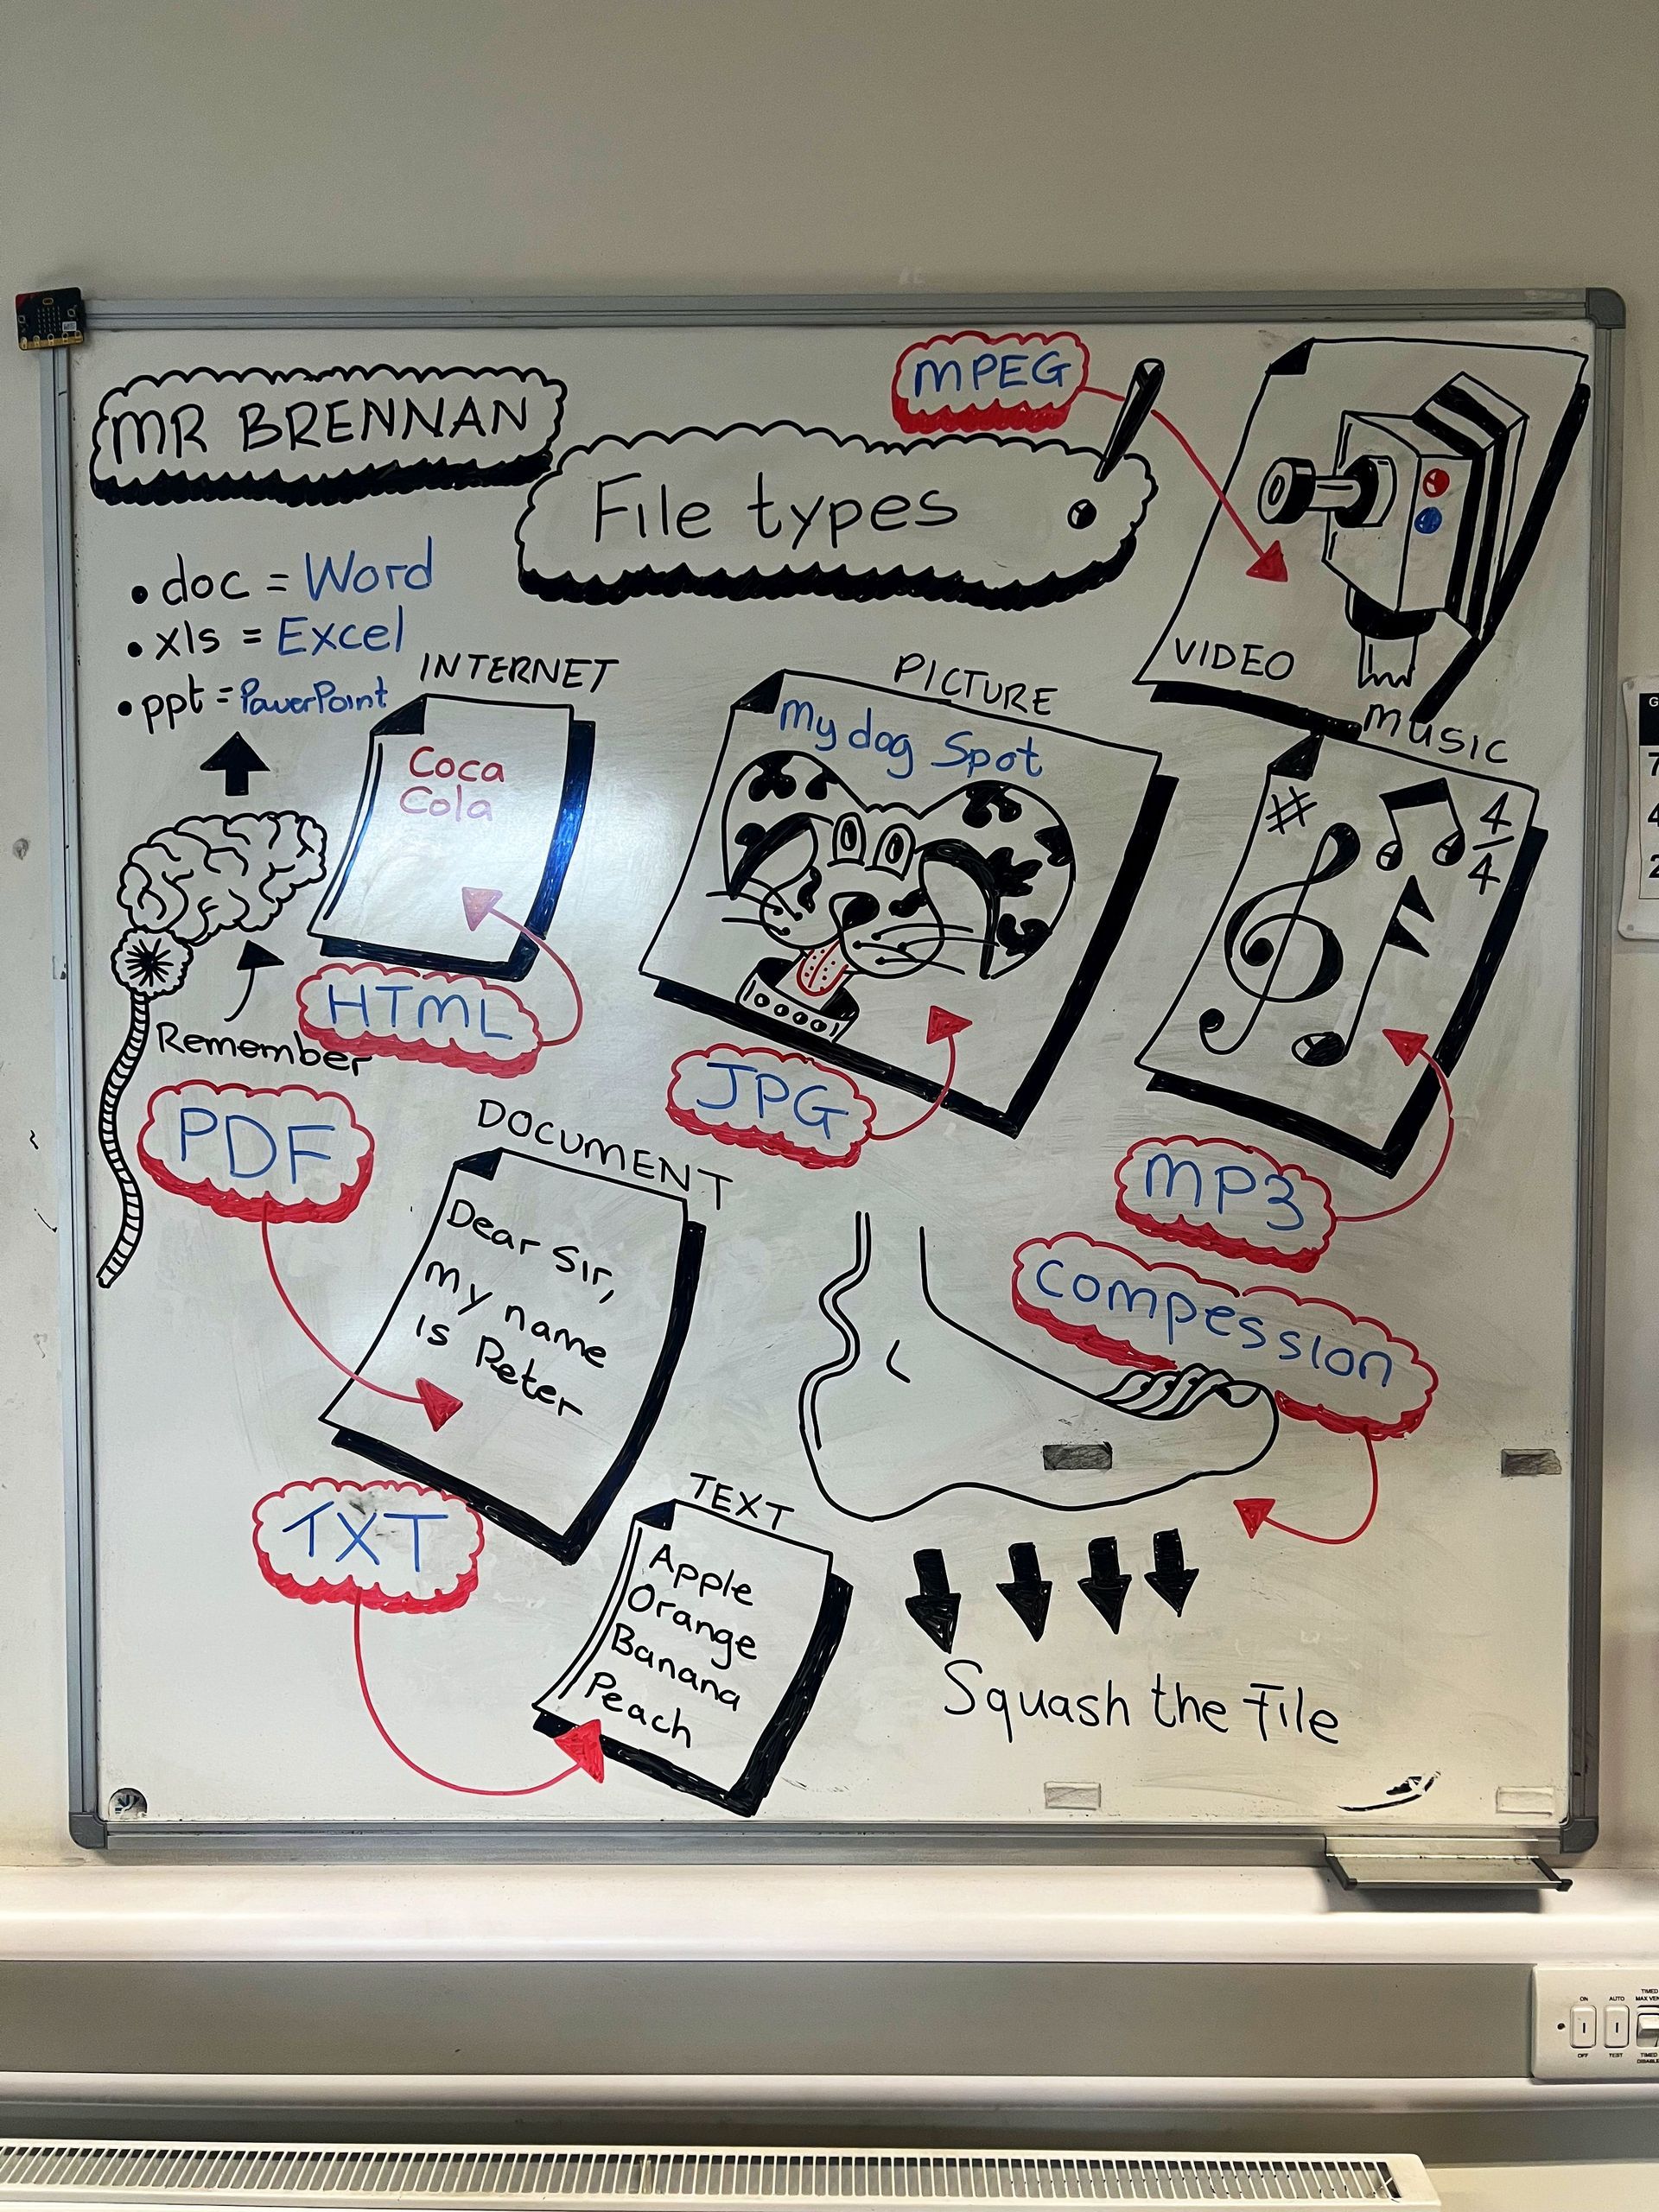 MR BRENNAN
File types
MPEG
VIDEO
• doc = Word
• xls = Excel
• ppt = PowerPoint
Remember
INTERNET
Coca
Cola
HTML
PICTURE
My dog Spot
JPG
MUSIC
4
4
MP3
PDF
DOCUMENT
Dear Sir,
My name
is Peter
TXT
TEXT
Apple
Orange
Banana
Peach
Compession
Squash the File
ON
AUTO
TIMED
OFF
TEST
TIMED